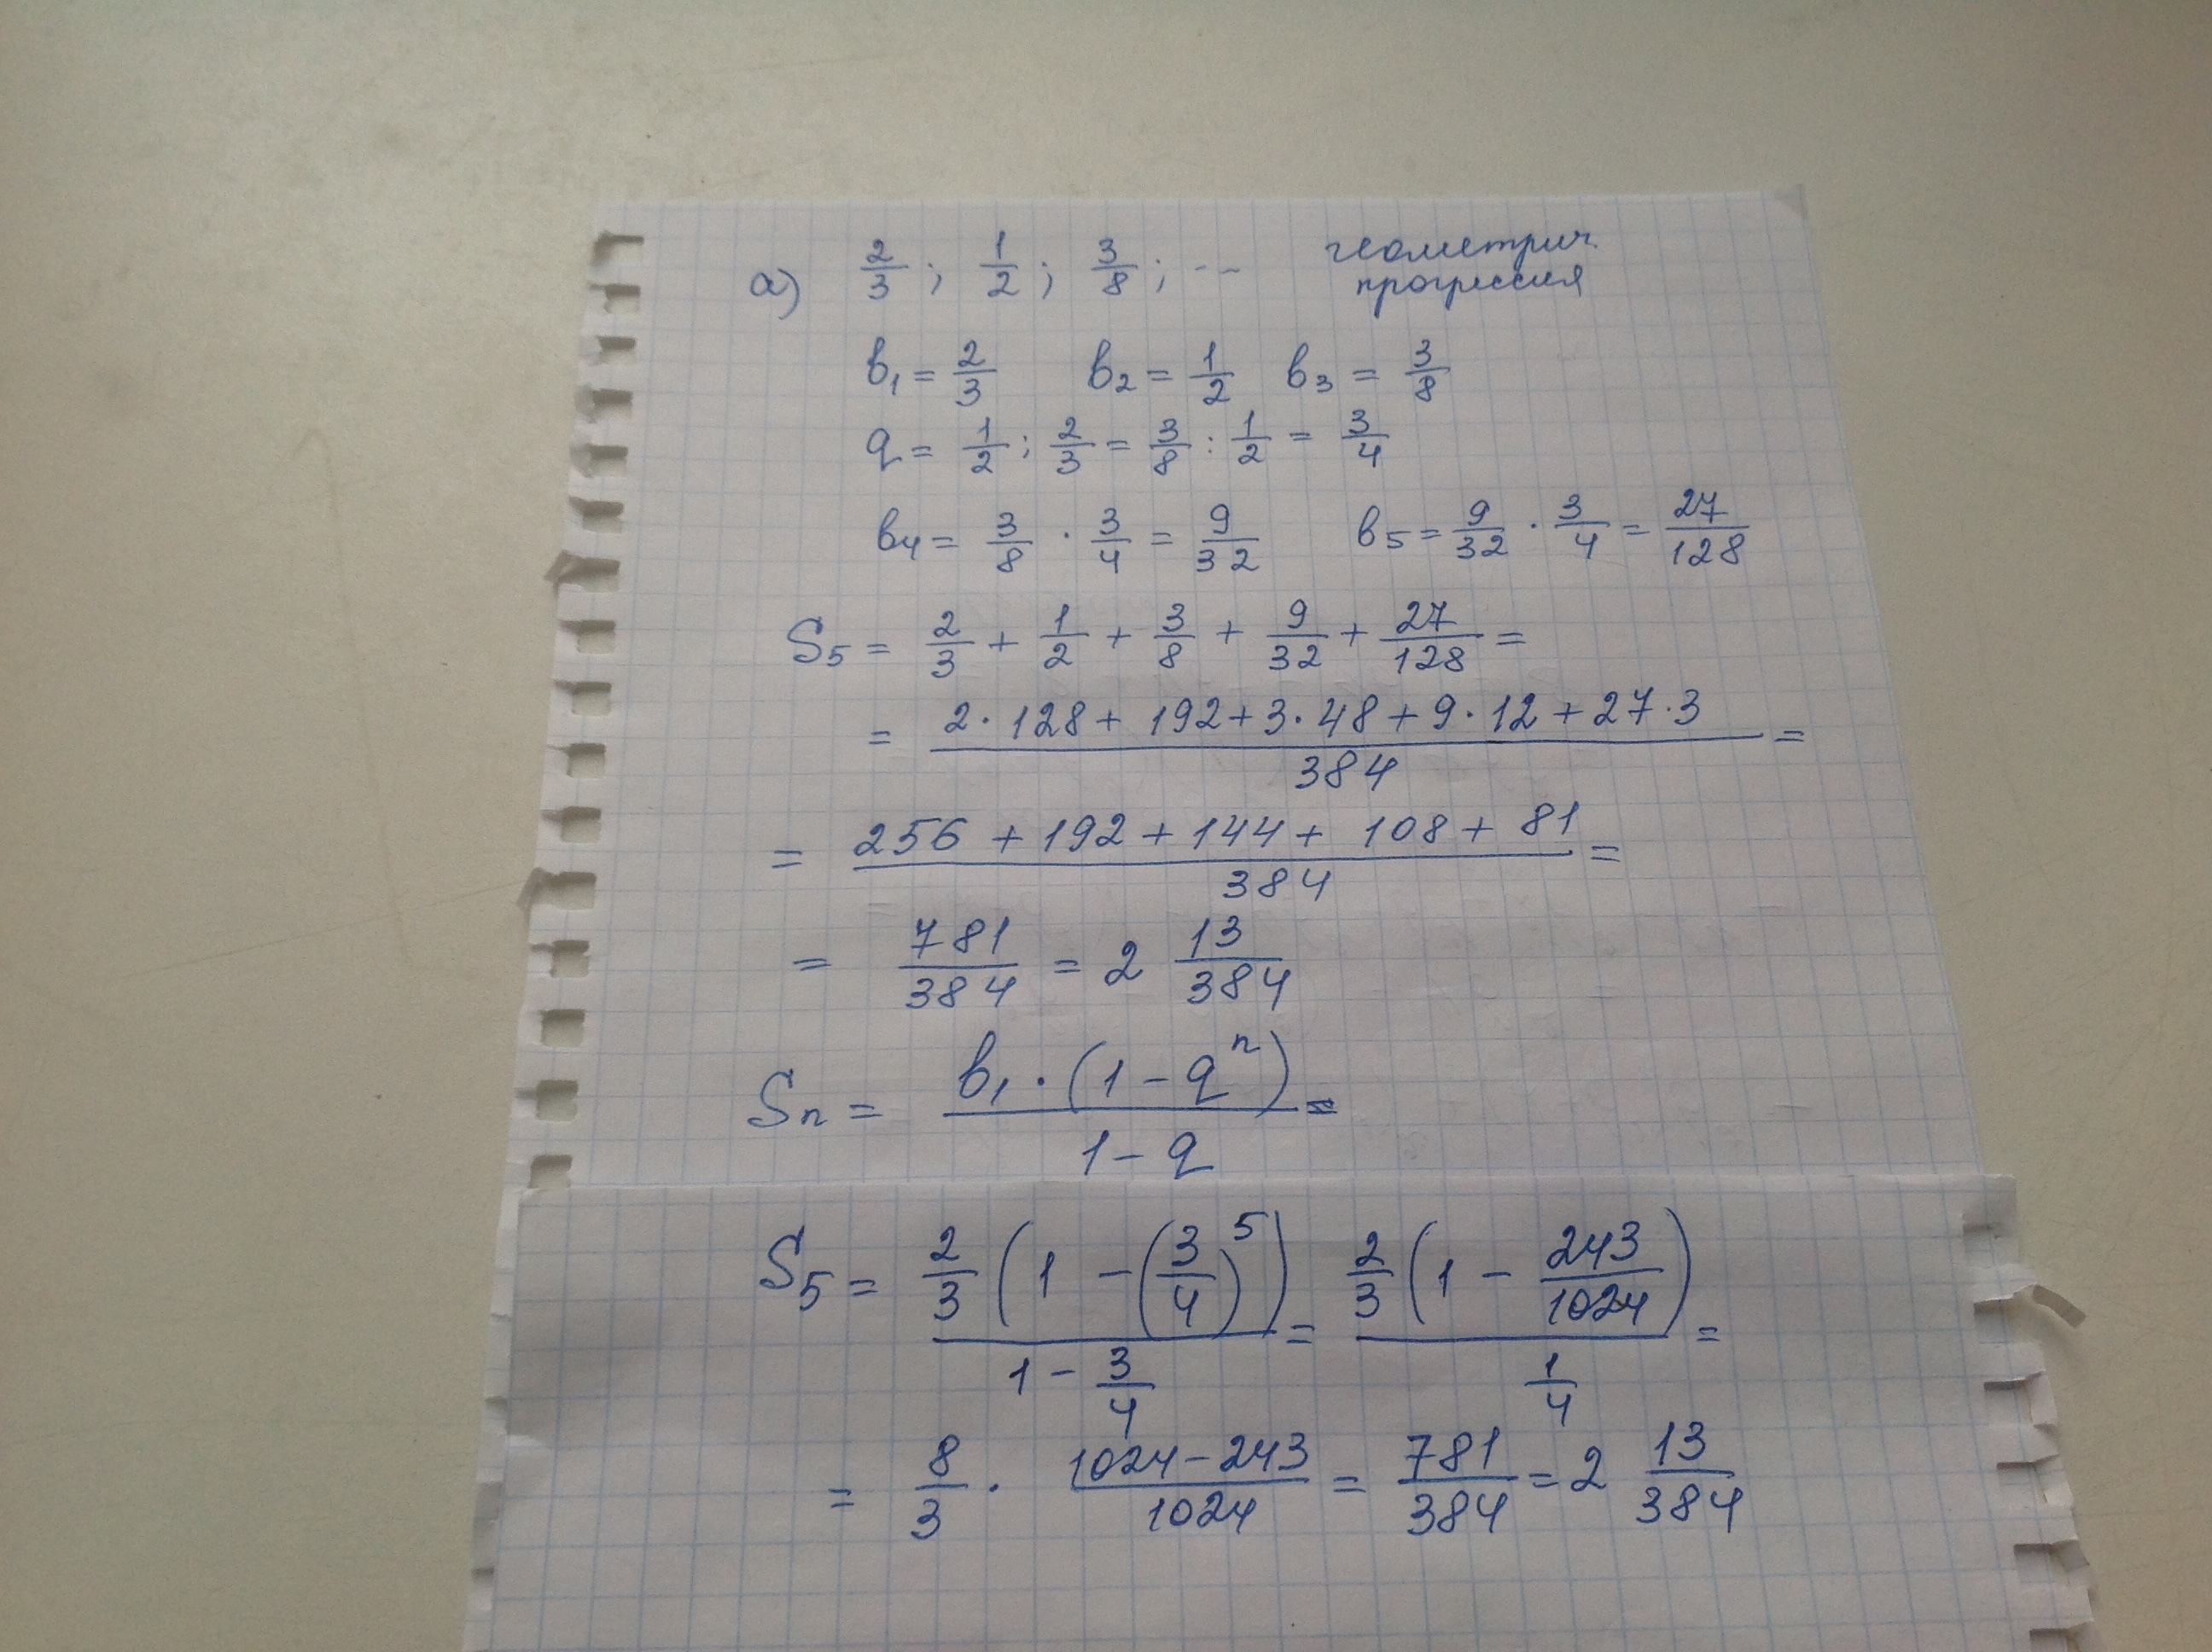 а) 2/3 ; 1/2 ; 3/8 ; -- геометрич.
прогрессия
b₁ = 2/3 b₂ = 1/2 b₃ = 3/8
q = 1/2 : 2/3 = 3/8 : 1/2 = 3/4
b₄ = 3/8 · 3/4 = 9/32 b₅ = 9/32 · 3/4 = 27/128
S₅ = 2/3 + 1/2 + 3/8 + 9/32 + 27/128 =
= (2·128 + 192 + 3·48 + 9·12 + 27·3)/384 =
= (256 + 192 + 144 + 108 + 81)/384 =
= 781/384 = 2 13/384
Sₙ = (b₁·(1-qⁿ))/(1-q) =
S₅ = (2/3 (1 - (3/4)⁵))/(1 - 3/4) = (2/3 (1 - 243/1024))/(1/4) =
= 8/3 · (1024-243)/1024 = 781/384 = 2 13/384